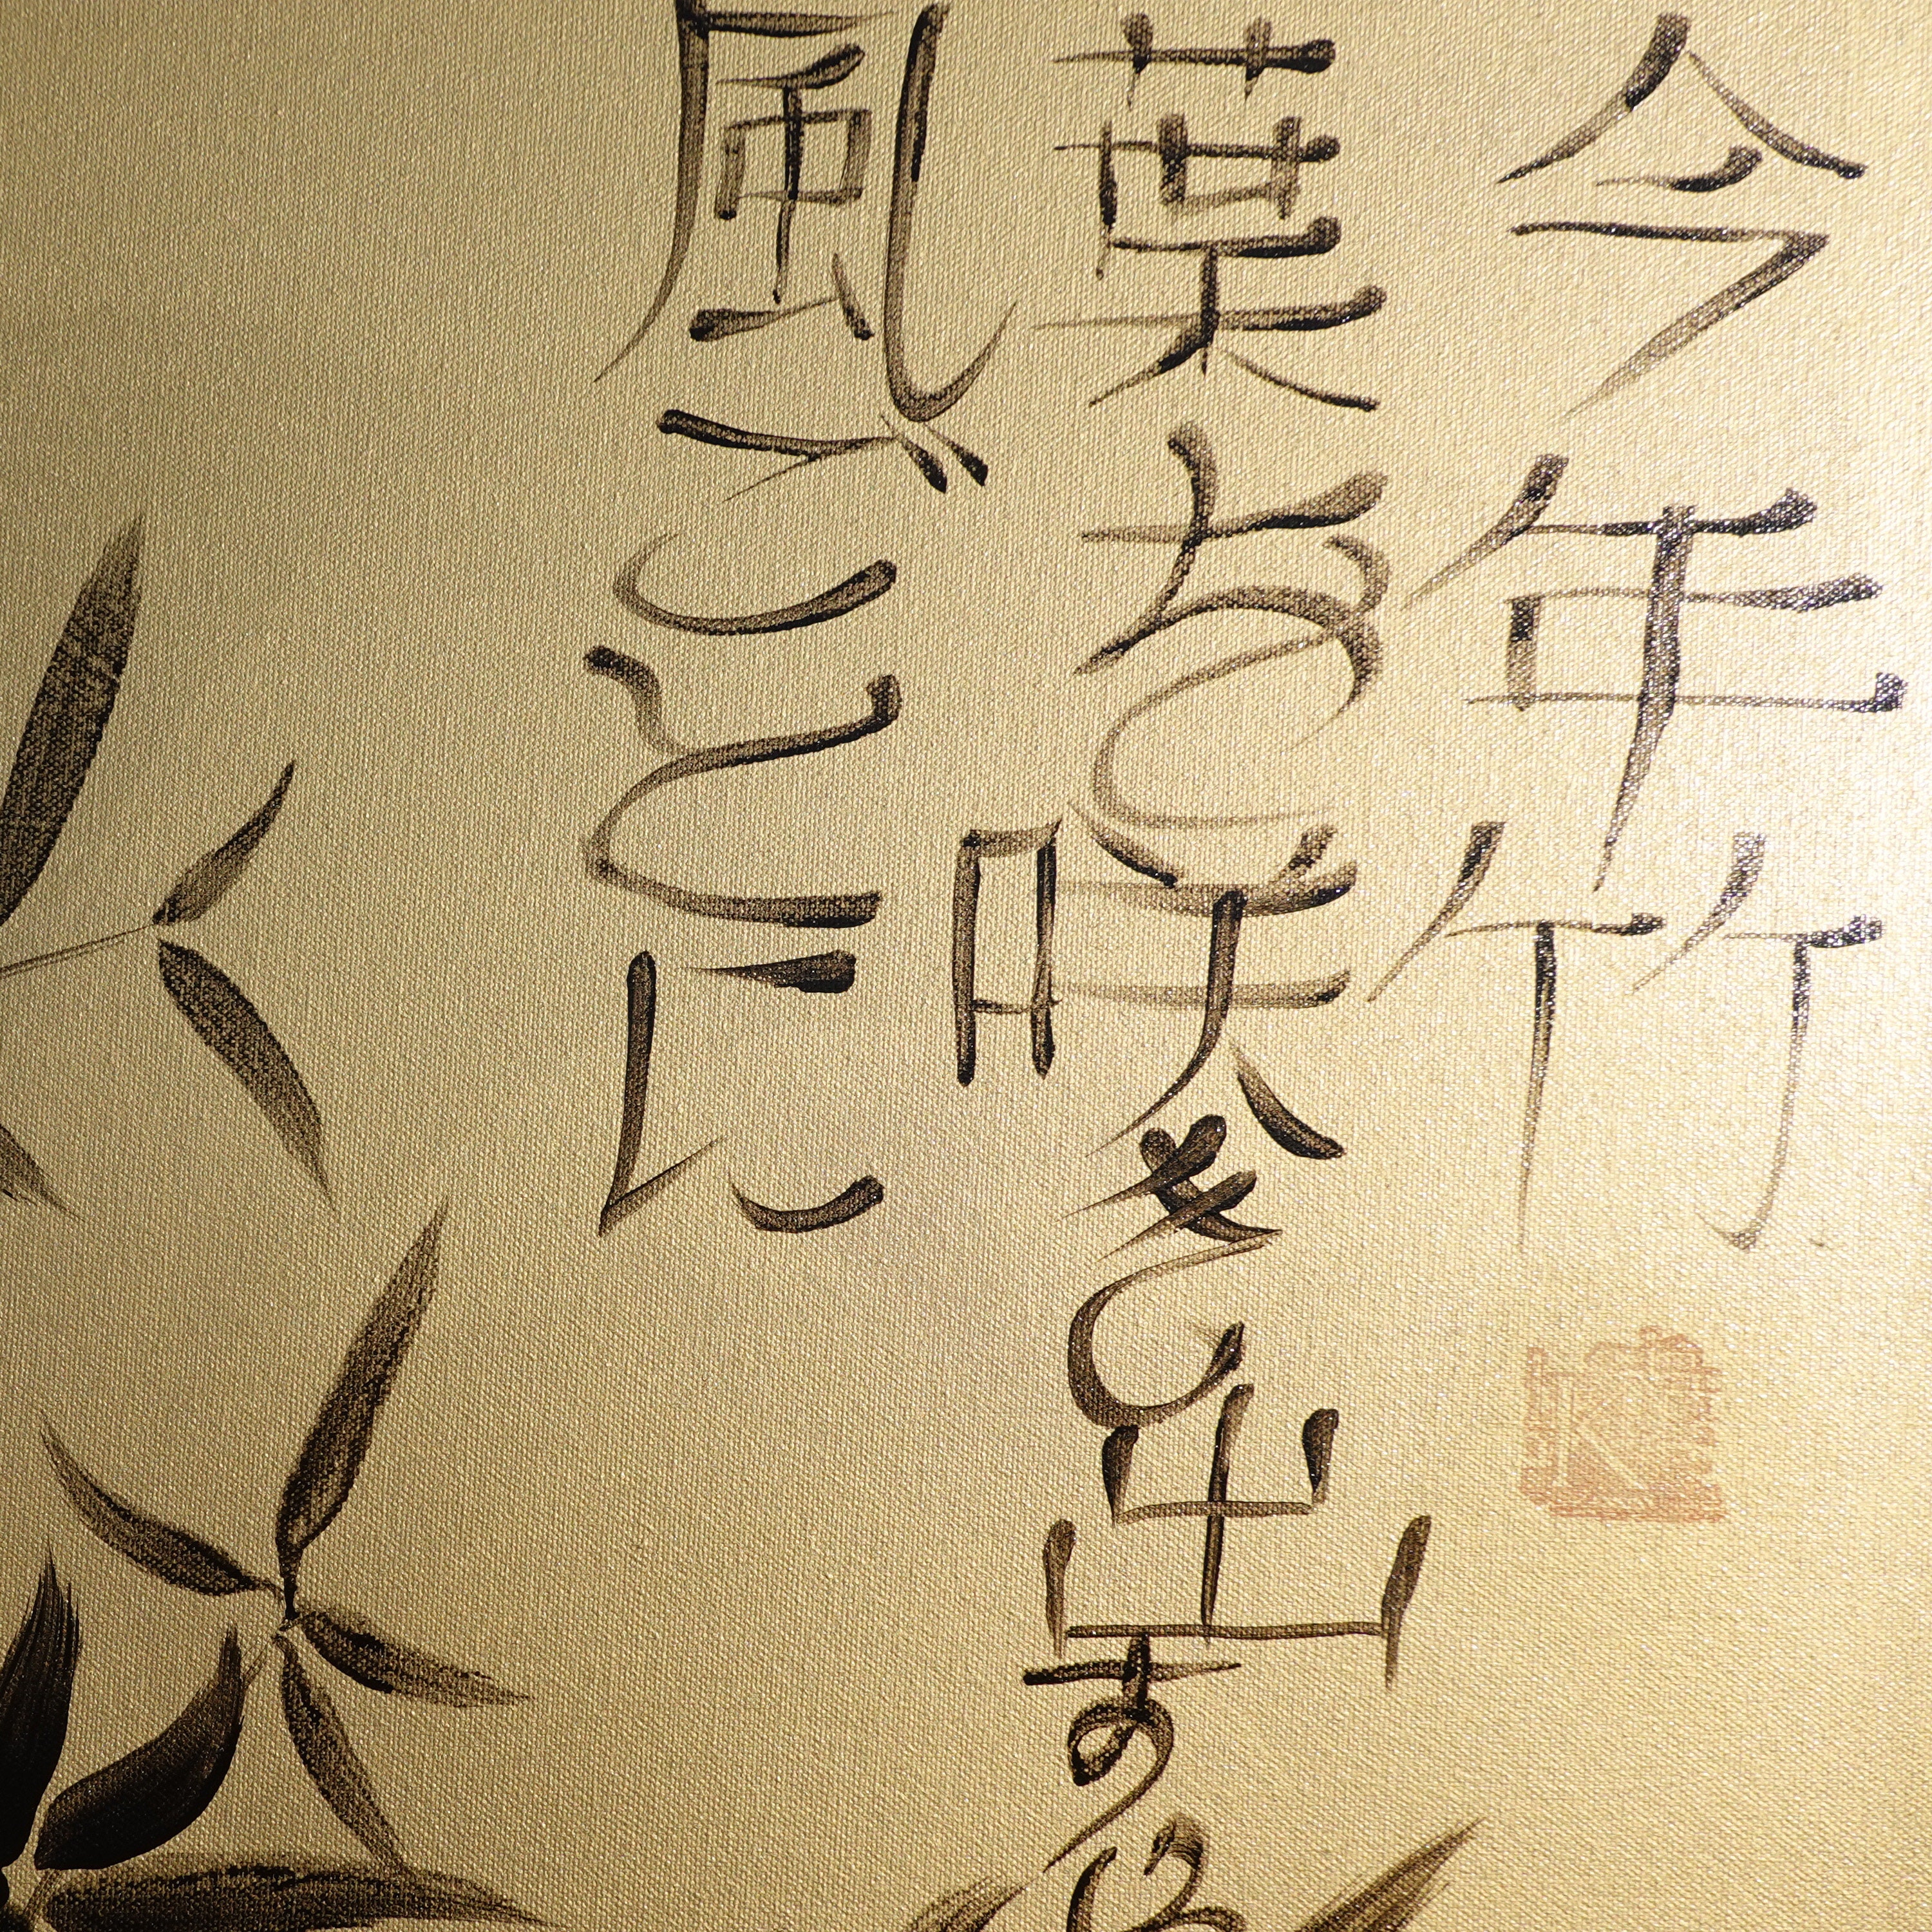 風ごとに
葉を咲き出すや
今年竹